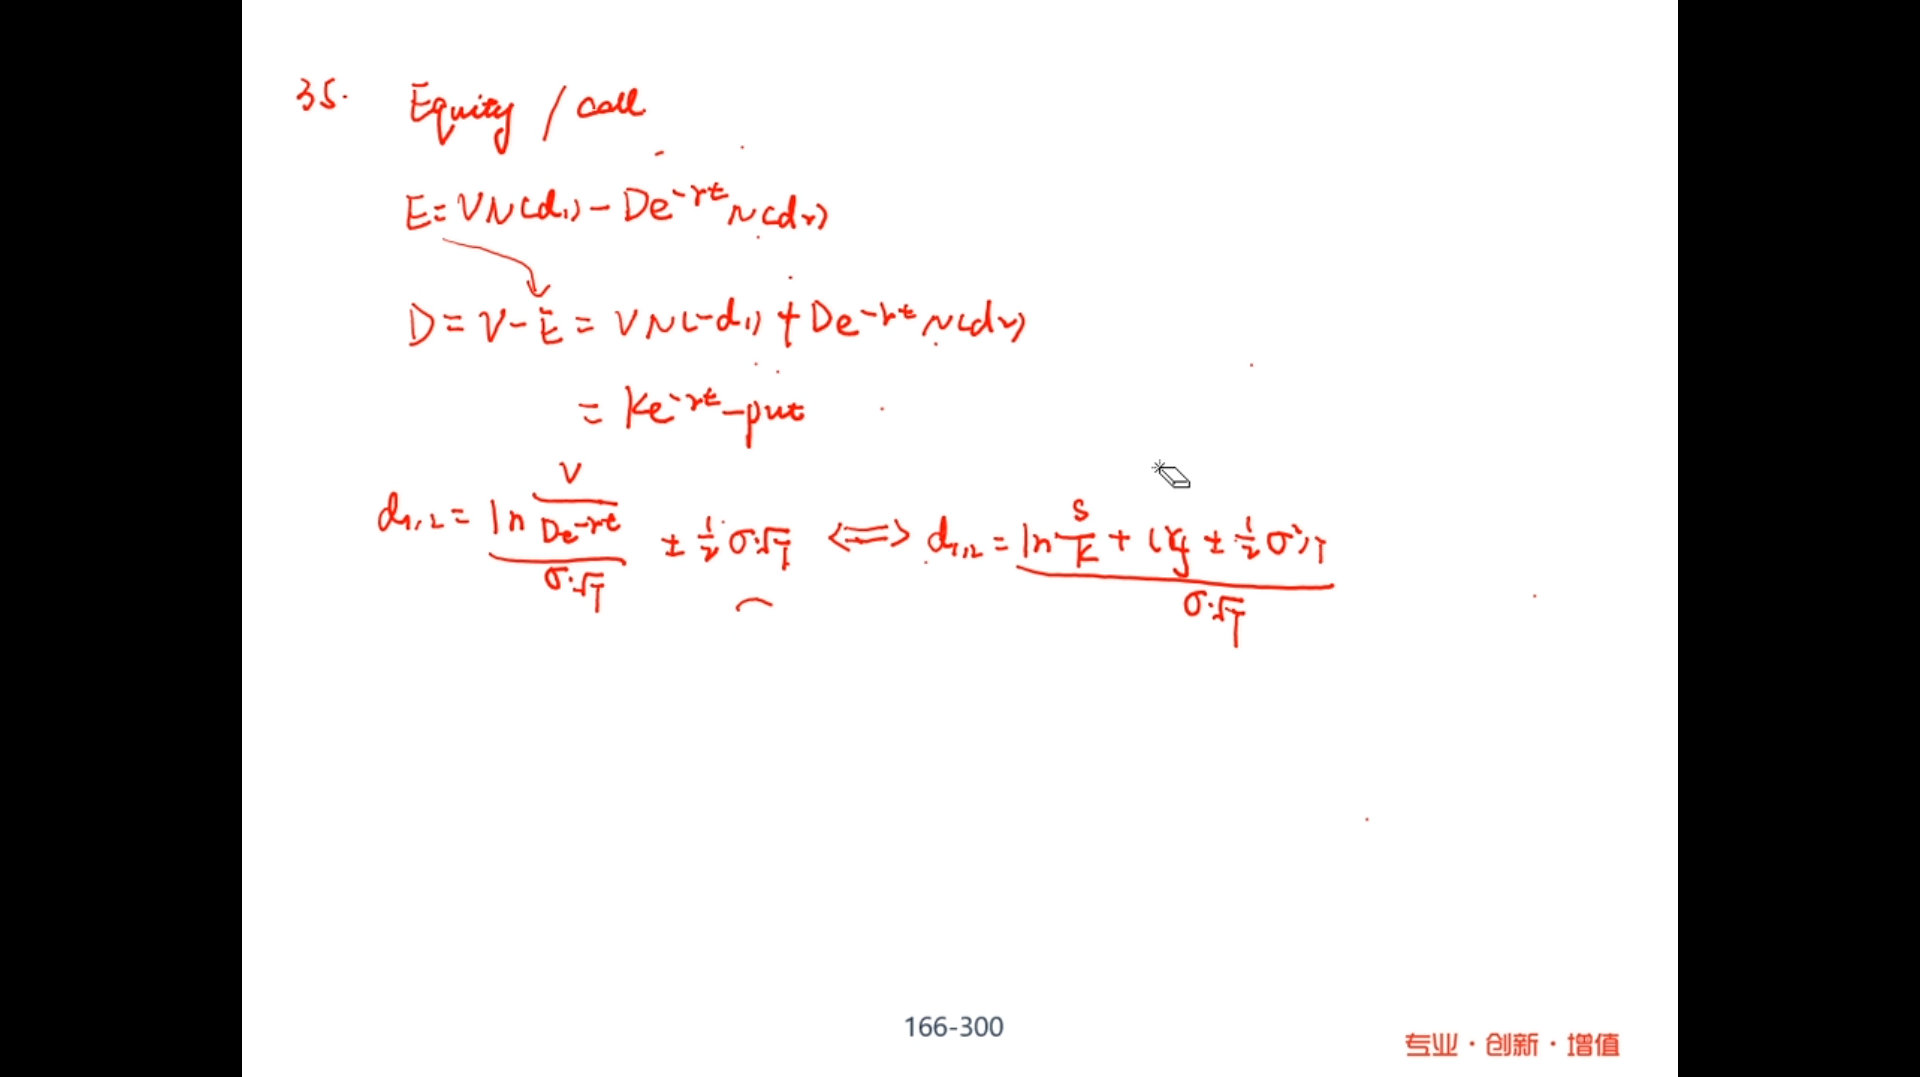 35. Equity / call
E = VN(d₁) - De^{-rt} N(d₂)
D = V - E = VN(-d₁) + De^{-rt} N(d₂)
= Ke^{-rt} - put
d₁,₂ = ln \frac{V}{De^{-rt}} / σ·√T ± ½ σ·√T ⟺ d₁,₂ = ln \frac{S}{K} + (rf ± ½ σ²)T / σ·√T
166-300
专业·创新·增值